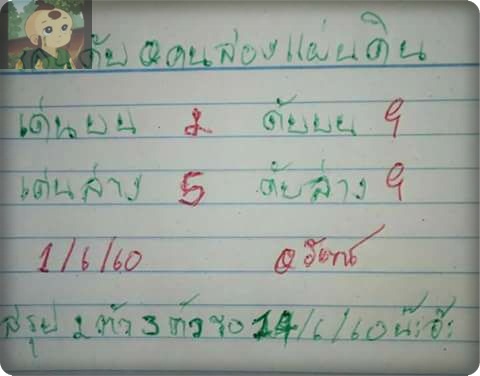 ดับ ๒คนส่องแผ่นดิน
เด่นบน 2 ดับบน 9
เด่นล่าง 5 ดับล่าง 9
1/6/60
สรุป 2 ตัว 3 ตัว รอ 14/6/60 น๊ะจ๊ะ